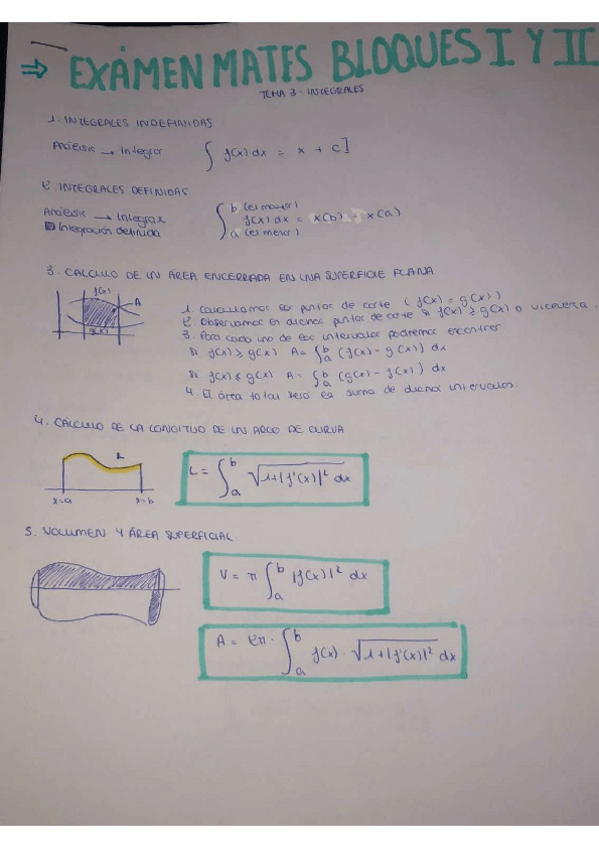 ⇒ EXÁMEN MATES BLOQUES I Y II
TEMA 3 - INTEGRALES
1. INTEGRALES INDEFINIDAS
→ Integrar ∫ f(x) dx = x + C]
2. INTEGRALES DEFINIDAS
→ Integrar
Integración definida
∫ₐᵇ f(x) dx = x(b) - x(a)
b (es mayor)
a (es menor)
3. CALCULO DE UN ÁREA ENCERRADA EN UNA SUPERFICIE PLANA
f(x)
A
g(x)
1. Calculamos los puntos de corte (f(x) = g(x))
2. Observamos en dichos puntos de corte si f(x) ≥ g(x) o viceversa.
3. Para cada uno de los intervalos podremos encontrar
si f(x) ≥ g(x) A = ∫ₐᵇ (f(x) - g(x)) dx
si f(x) ≤ g(x) A = ∫ₐᵇ (g(x) - f(x)) dx
4. El área total será la suma de dichos intervalos.
4. CÁLCULO DE LA LONGITUD DE UN ARCO DE CURVA
L
x=a x=b
L = ∫ₐᵇ √1+|f'(x)|² dx
5. VOLUMEN Y ÁREA SUPERFICIAL
V = π ∫ₐᵇ |f(x)|² dx
A = 2π · ∫ₐᵇ f(x) · √1+|f'(x)|² dx